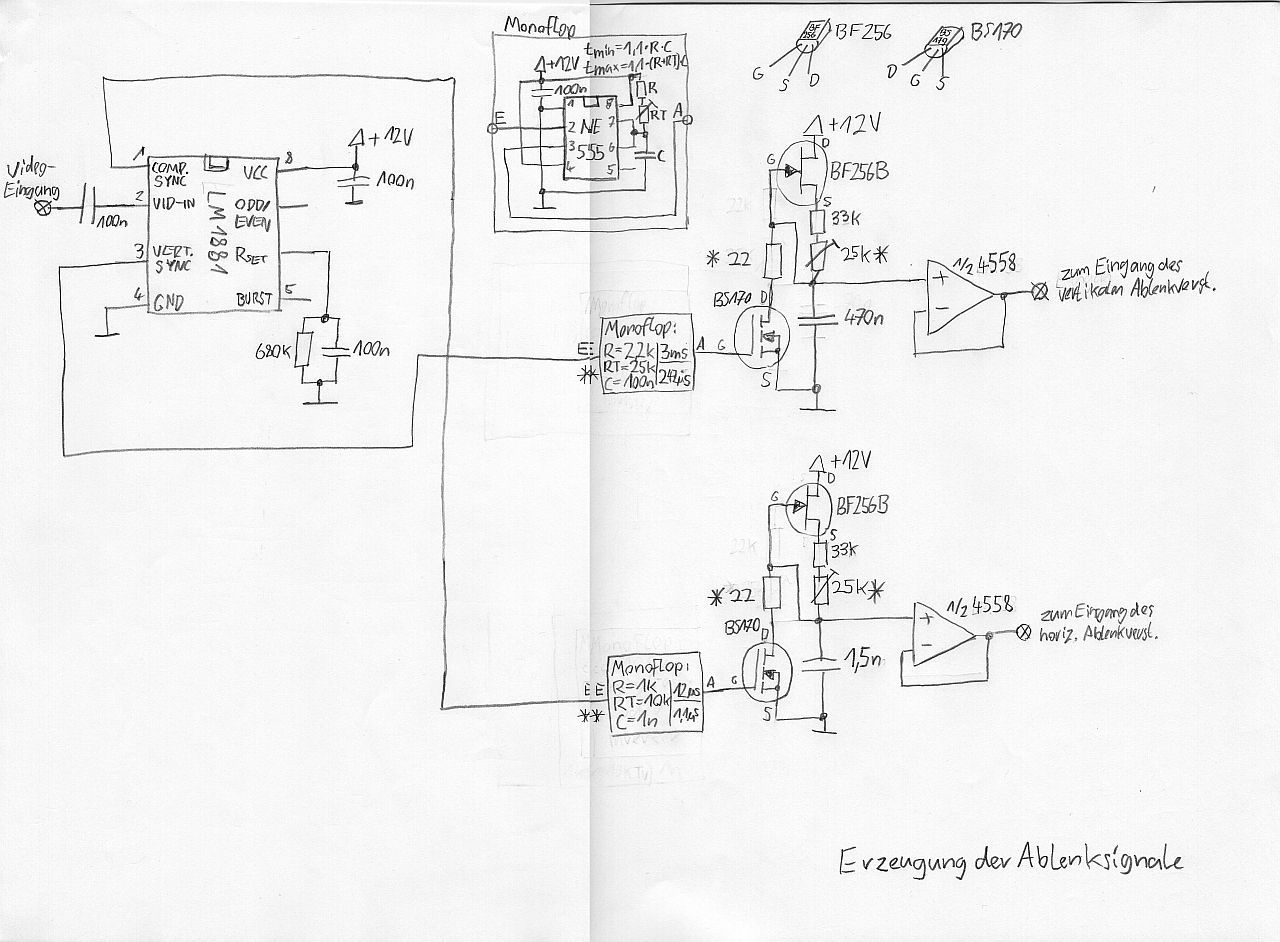 Monoflop
tmin=1,1·R·C
tmax=1,1·(R+RT)·C
+12V
100n
R
RT
E
A
C
1
2
3
4
NE
555
8
7
6
5
BF
256
BF256
G
S
D
BS
170
BS170
D
G
S
Video-
Eingang
100n
1
2
3
4
COMP.
SYNC
VID-IN
VERT.
SYNC
GND
LM1881
VCC
ODD/
EVEN
RSET
BURST
8
5
+12V
100n
680K
100n
+12V
D
G
BF256B
S
33k
25k*
*22
BS170
D
470n
G
S
1/2 4558
+
-
zum Eingang des
vertikalen Ablenkverst.
E
**
Monoflop:
R=22k
RT=25k
C=100n
3ms
242µs
A
+12V
D
G
BF256B
S
33k
25k*
*22
BS170
D
1,5n
G
S
1/2 4558
+
-
zum Eingang des
horiz. Ablenkverst.
E E
**
Monoflop:
R=1k
RT=10k
C=1n
12µs
1,1µs
A
Erzeugung der Ablenksignale